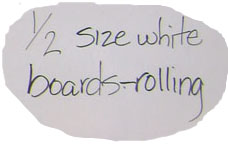 1/2 size white
boards-rolling